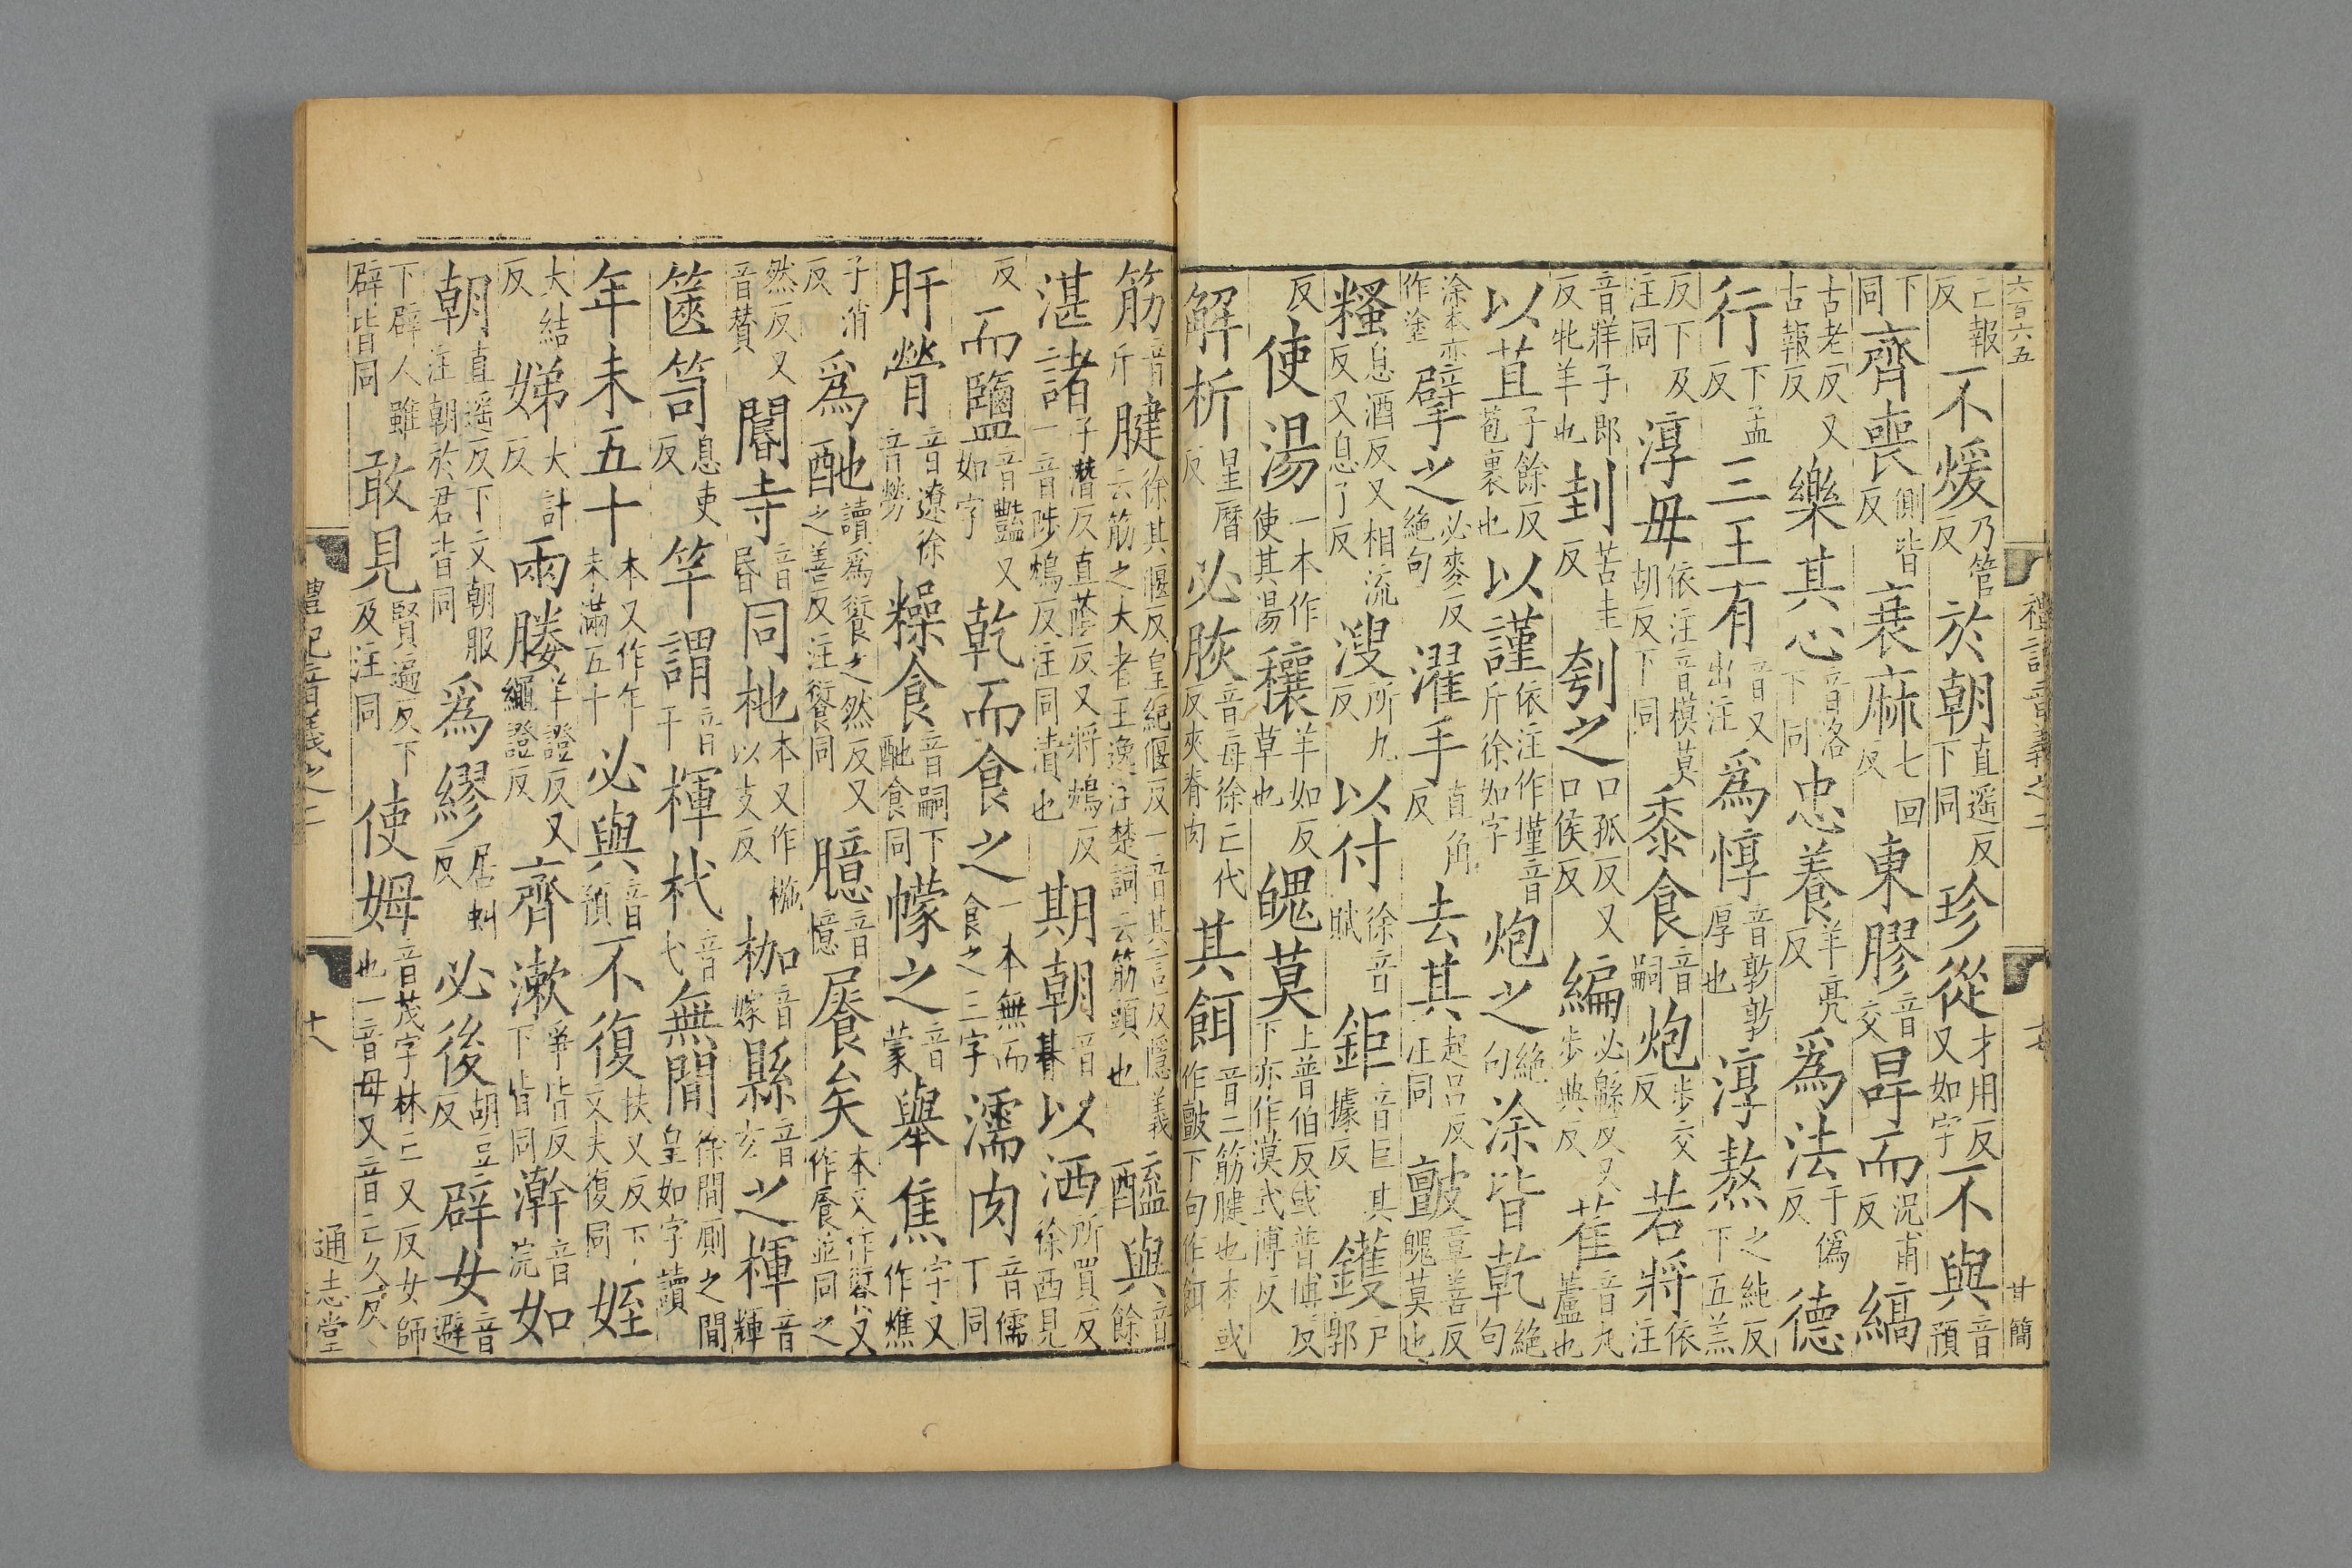 六百六五
禮記音義之二
十七
廿簡
亡報反不煖乃管反於朝直遥反下同珍從才用反又如字不與音預
下同齊喪側皆反衰麻七回反東膠音交冔而況甫反縞
古老反又古報反樂其心音洛下同忠養羊亮反爲法于僞反德
行下孟反三王有音又出注爲惇音敦敦厚也淳熬之純反下五羔
反下及注同淳毋依注音模莫胡反下同黍食音嗣炮步交反若將依注
音牂子郎反牝羊也刲苦圭反刳之口孤反又口侯反編必縣反又步典反萑音丸蘆也
以苴子餘反苞裹也以謹依注作墐音斤徐如字炮之絶句涂皆乾絶句
涂本亦作塗擘之必麥反絶句濯手直角反去其起呂反注同皽章善反魄莫也
糔息酒反又相流反又息了反溲所九反以付徐音賦鉅音巨其據反鑊户郭
反使湯一本作使其湯穰羊如反草也魄莫上普伯反或普博反下亦作漠武博反
解析星曆反必脄音每徐亡代反夾脊肉其餌音二筋腱也本或作皽下句作餌
筋音斤腱徐其偃反皇紀偃反一音其言反隱義云筋之大者王逸注楚詞云筋頭也醢與音餘
湛諸子潛反直蔭反又將鴆反一音陟鴆反注同漬也期朝音朞以洒所買反徐西見
反而鹽音豔又如字乾而食之一本無而食之三字濡肉音儒丁同
肝膋音遼徐音勞糝食音嗣下酏食同幪之音蒙舉焦字又作燋
子消反爲酏讀爲餰之然反又之善反注餰同臆音憶屬矣本又作餰又作𩜾並同之
然反又音贊閽寺音昏同杝本又作椸以支反枷音嫁縣音玄之楎音輝
篋笥息吏反竿謂音干楎杙音弋無間徐間厠之間皇如字讀
年未五十本又作年未滿五十必與音預不復扶又反下文夫復同姪
大結反娣大計反兩媵羊證反又繩證反齊漱爭皆反下皆同澣音浣如
朝直遥反下文朝服注朝於君皆同爲繆居虯反必後胡豆反辟女音避
下辟人雖辟皆同敢見賢遍反下及注同使姆音茂字林亡又反女師也一音母又音亡久反
禮記音義之二
十八
通志堂